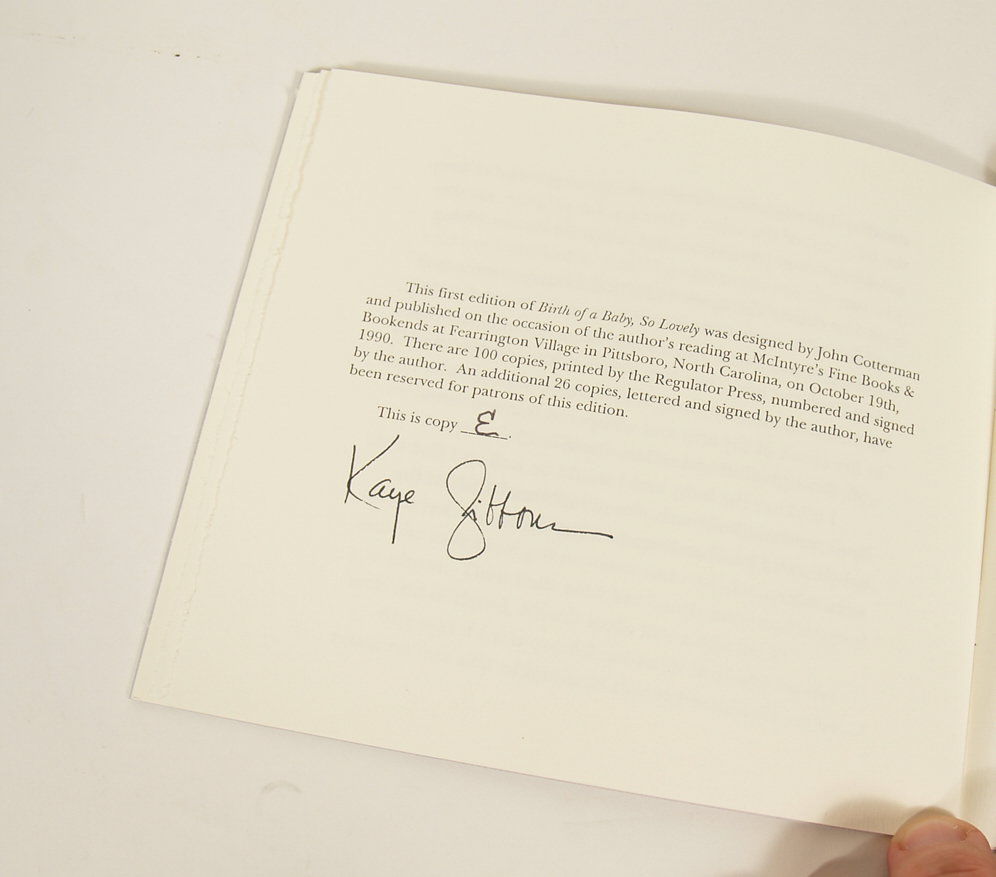 This first edition of Birth of a Baby, So Lovely was designed by John Cotterman
and published on the occasion of the author's reading at McIntyre's Fine Books &
Bookends at Fearrington Village in Pittsboro, North Carolina, on October 19th,
1990. There are 100 copies, printed by the Regulator Press, numbered and signed
by the author. An additional 26 copies, lettered and signed by the author, have
been reserved for patrons of this edition.
This is copy E.
Kaye Gibbons